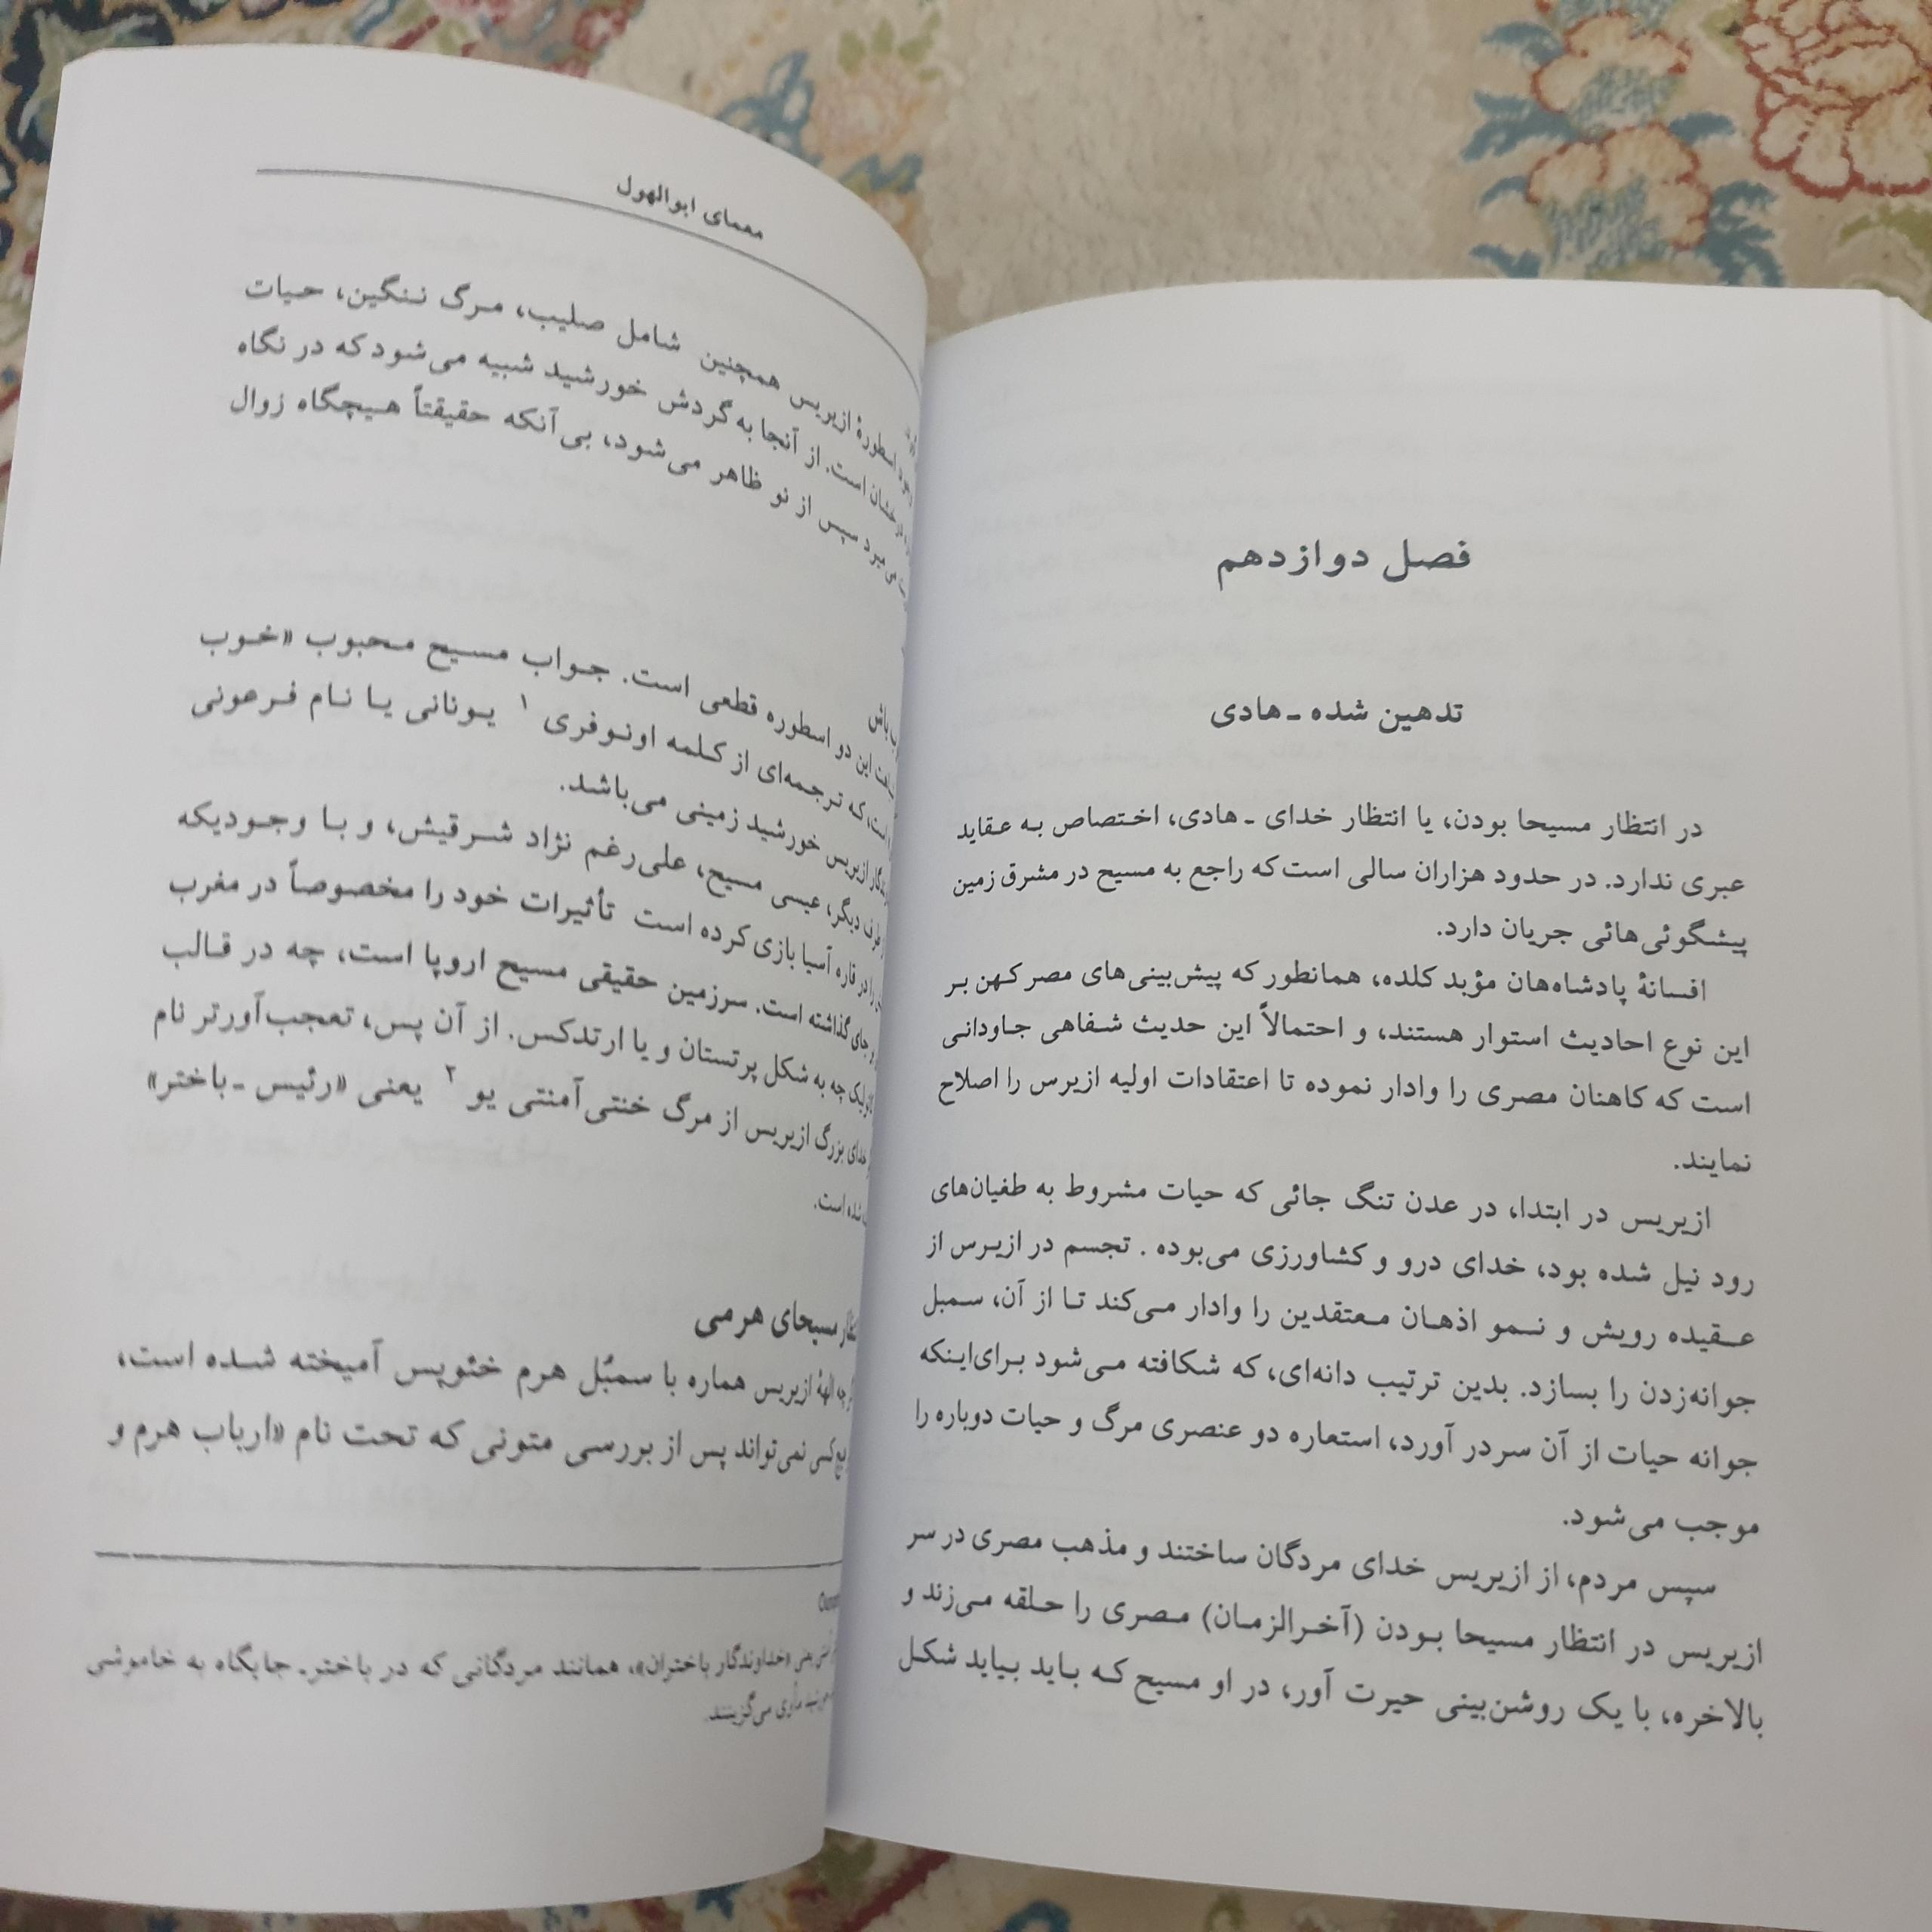 فصل دوازدهم
تدهین شده ـ هادی
در انتظار مسیحا بودن، یا انتظار خدای ـ هادی، اختصاص به عقاید
عبری ندارد. در حدود هزاران سالی است که راجع به مسیح در مشرق زمین
پیشگوئی‌هائی جریان دارد.
افسانهٔ پادشاه‌هان مؤبد کلده، همانطور که پیش‌بینی‌های مصر کهن بر
این نوع احادیث استوار هستند، و احتمالاً این حدیث شفاهی جاودانی
است که کاهنان مصری را وادار نموده تا اعتقادات اولیه ازیرس را اصلاح
نمایند.
ازیریس در ابتدا، در عدن تنگ جائی که حیات مشروط به طغیان‌های
رود نیل شده بود، خدای درو و کشاورزی می‌بوده . تجسم در ازیرس از
عقیده رویش و نمو اذهان معتقدین را وادار می‌کند تا از آن، سمبل
جوانه‌زدن را بسازد. بدین ترتیب دانه‌ای، که شکافته می‌شود برای‌اینکه
جوانه حیات از آن سردر آورد، استعاره دو عنصری مرگ و حیات دوباره را
موجب می‌شود.
سپس مردم، از ازیریس خدای مردگان ساختند و مذهب مصری در سر
ازیریس در انتظار مسیحا بودن (آخرالزمان) مصری را حلقه می‌زند و
بالاخره، با یک روشن‌بینی حیرت آور، در او مسیح که باید بیاید شکل
معمای ابوالهول
اسطورهٔ ازیریس همچنین شامل صلیب، مرگ ننگین، حیات
است. از آنجا به گردش خورشید شبیه می‌شود که در نگاه
می‌میرد سپس از نو ظاهر می‌شود، بی‌آنکه حقیقتاً هیچگاه زوال
باش
این دو اسطوره قطعی است. جواب مسیح محبوب «خوب
است، که ترجمه‌ای از کلمه اونوفری ۱ یونانی یا نام فرعونی
ازیریس خورشید زمینی می‌باشد.
طرف دیگر، عیسی مسیح، علی‌رغم نژاد شرقیش، و با وجودیکه
را در قاره آسیا بازی کرده است تأثیرات خود را مخصوصاً در مغرب
جای گذاشته است. سرزمین حقیقی مسیح اروپا است، چه در قالب
چه به شکل پرتستان و یا ارتدکس. از آن پس، تعجب‌آورتر نام
خدای بزرگ ازیریس از مرگ خنتی‌آمنتی یو ۲ یعنی «رئیس ـ باختر»
شده است.
مسیحای هرمی
چه الههٔ ازیریس هماره با سمبُل هرم خئوپس آمیخته شده است،
کسی نمی‌تواند پس از بررسی متونی که تحت نام «ارباب هرم و
یعنی «خداوندگار باختران»، همانند مردگانی که در باختر. جایگاه به خاموشی
مأوی می‌گزینند.